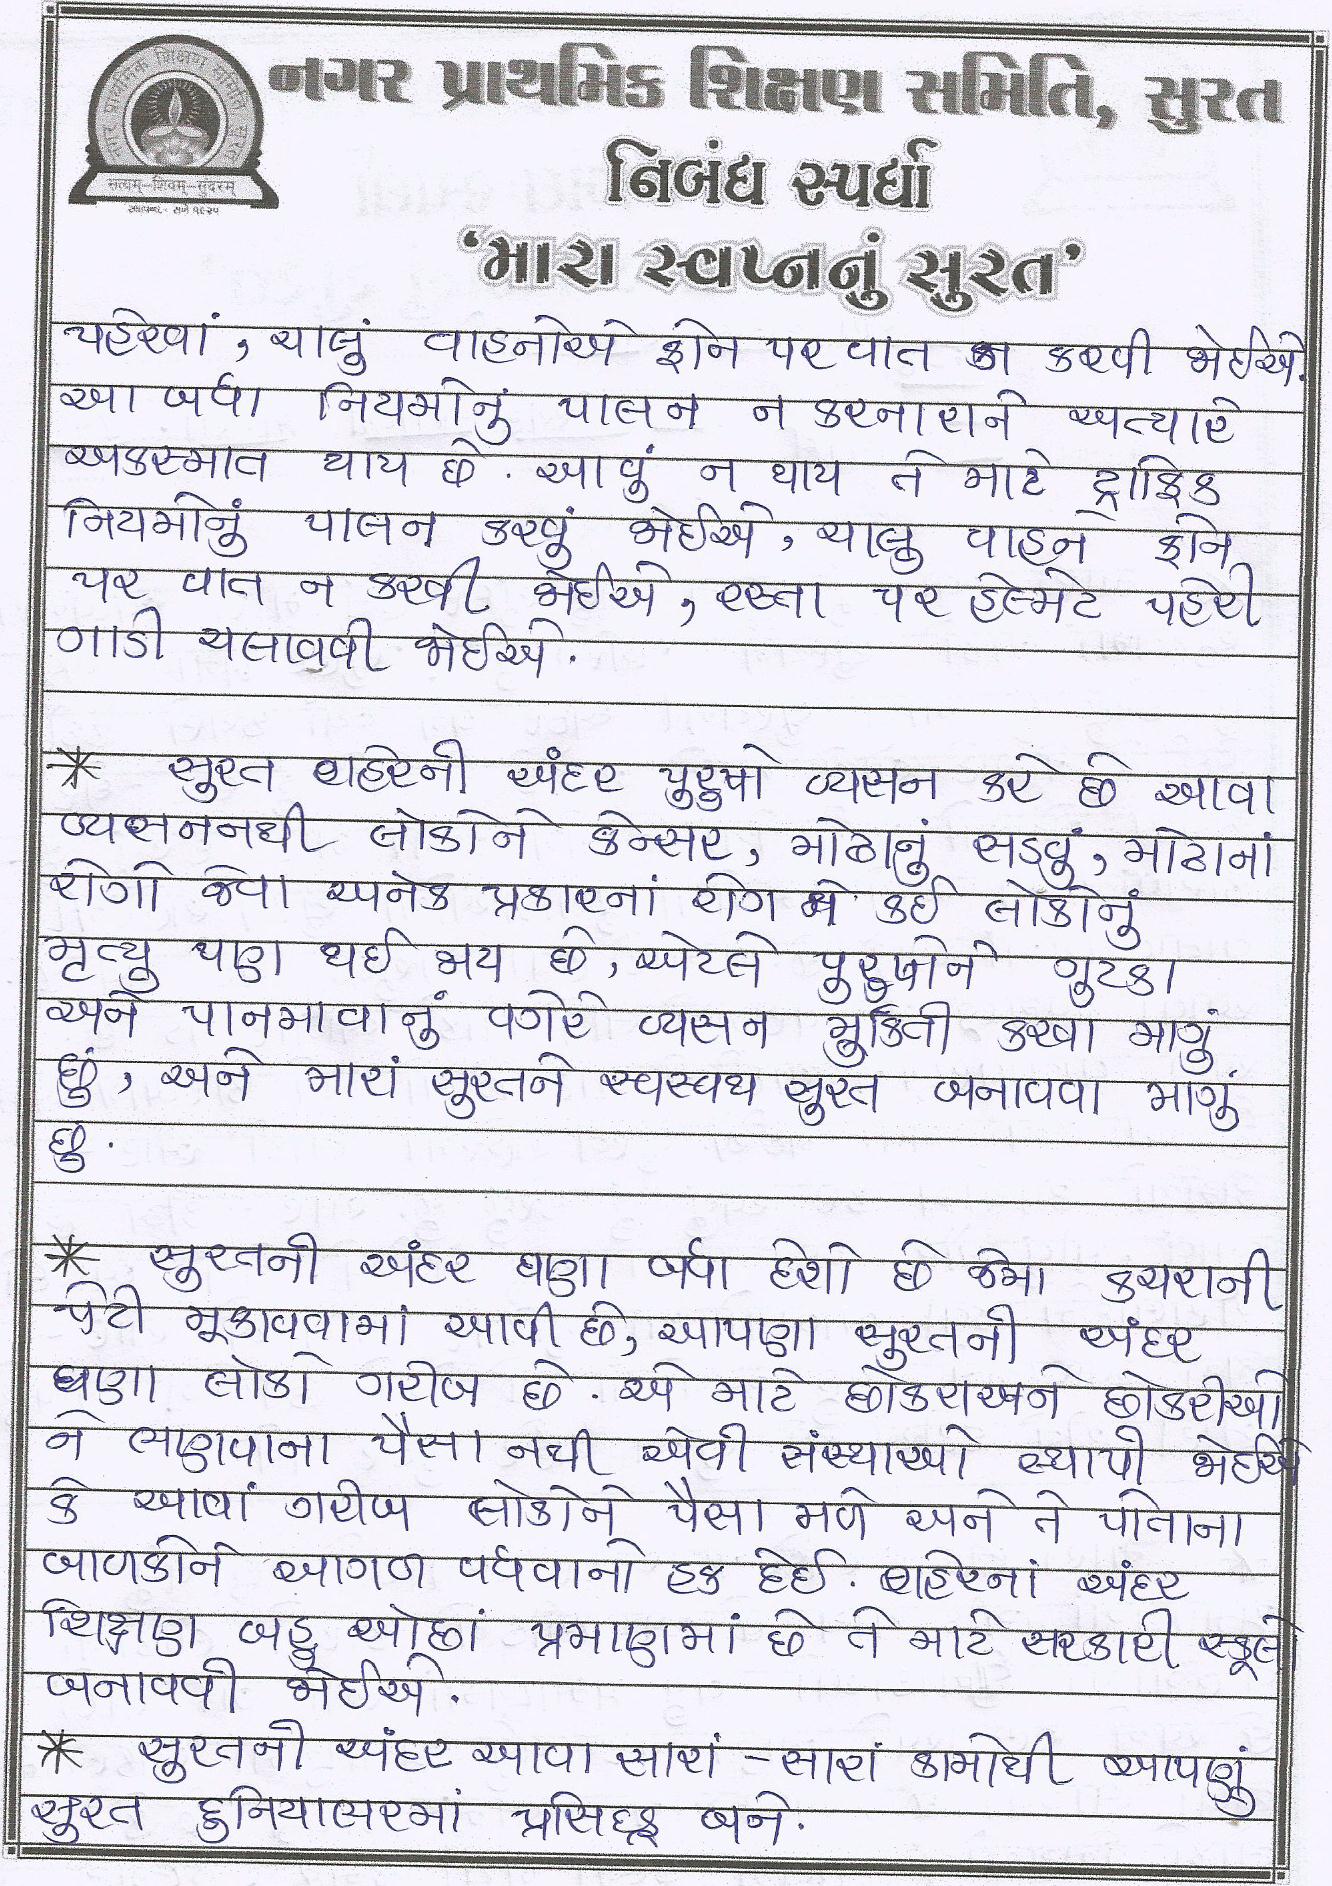 નગર પ્રાથમિક શિક્ષણ સમિતિ, સુરત
નગર પ્રાથમિક શિક્ષણ સમિતિ સુરત
સત્યમ્-શિવમ્-સુંદરમ્
સ્થાપના - સને ૧૯૨૫
નિબંધ સ્પર્ધા
‘મારા સ્વપ્નનું સુરત’
પહેરવાં, ચાલું વાહનોએ ફોન પર વાત ન કરવી જોઈએ.
આ બધા નિયમોનું પાલન ન કરનારાને અત્યારે
અકસ્માત થાય છે. આવું ન થાય તે માટે ટ્રાફિક
નિયમોનું પાલન કરવું જોઈએ, ચાલુ વાહને ફોન
પર વાત ન કરવી જોઈએ, રસ્તા પર હેલ્મેટ પહેરી
ગાડી ચલાવવી જોઈએ.
* સુરત શહેરની અંદર પુરુષો વ્યસન કરે છે આવા
વ્યસનનથી લોકોને કેન્સર, મોઢાનું સડવું, મોઢાનાં
રોગો જેવા અનેક પ્રકારનાં રોગ ને કઈ લોકોનું
મૃત્યુ પણ થઈ જાય છે, એટલે પુરુષોને ગુટકા
અને પાનમાવાનું વગેરે વ્યસન મુકિતી કરવા માગું
છું, અને મારાં સુરતને સ્વસ્વથ સુરત બનાવવા માગું
છું.
* સુરતની અંદર ઘણા બધા દેશો છે જેમા કચરાની
પેટી મૂકાવવામાં આવી છે, આપણા સુરતની અંદર
ઘણા લોકો ગરીબ છે. એ માટે છોકરાઅને છોકરીઓ
ને ભણવાના પૈસા નથી એવી સંસ્થાઓ સ્થાપી જોઈએ
કે આવાં ગરીબ લોકોને પૈસા મળે અને તે પોતાના
બાળકોને આગળ વધવાનો હક દેઈ. શહેરનાં અંદર
શિક્ષણ બહુ ઓછાં પ્રમાણમાં છે તે માટે સરકારી સ્કૂલો
બનાવવી જોઈએ.
* સુરતની અંદર આવા સારાં - સારાં કામોથી આપણું
સુરત દુનિયાભરમાં પ્રસિદ્ધ બને.